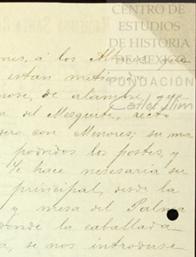 CENTRO DE
ESTUDIOS
DE HISTORIA
DE MÉXICO
FUNDACIÓN
Carlos Slim
nes, á los
estan
nose, de alam
a del Mesquite, recto
con Menores; su ma
podridos los postes, y
se hace necesaria su
principal, desde la
y mesa del Palma
donde la caballada
a, se nos introduse